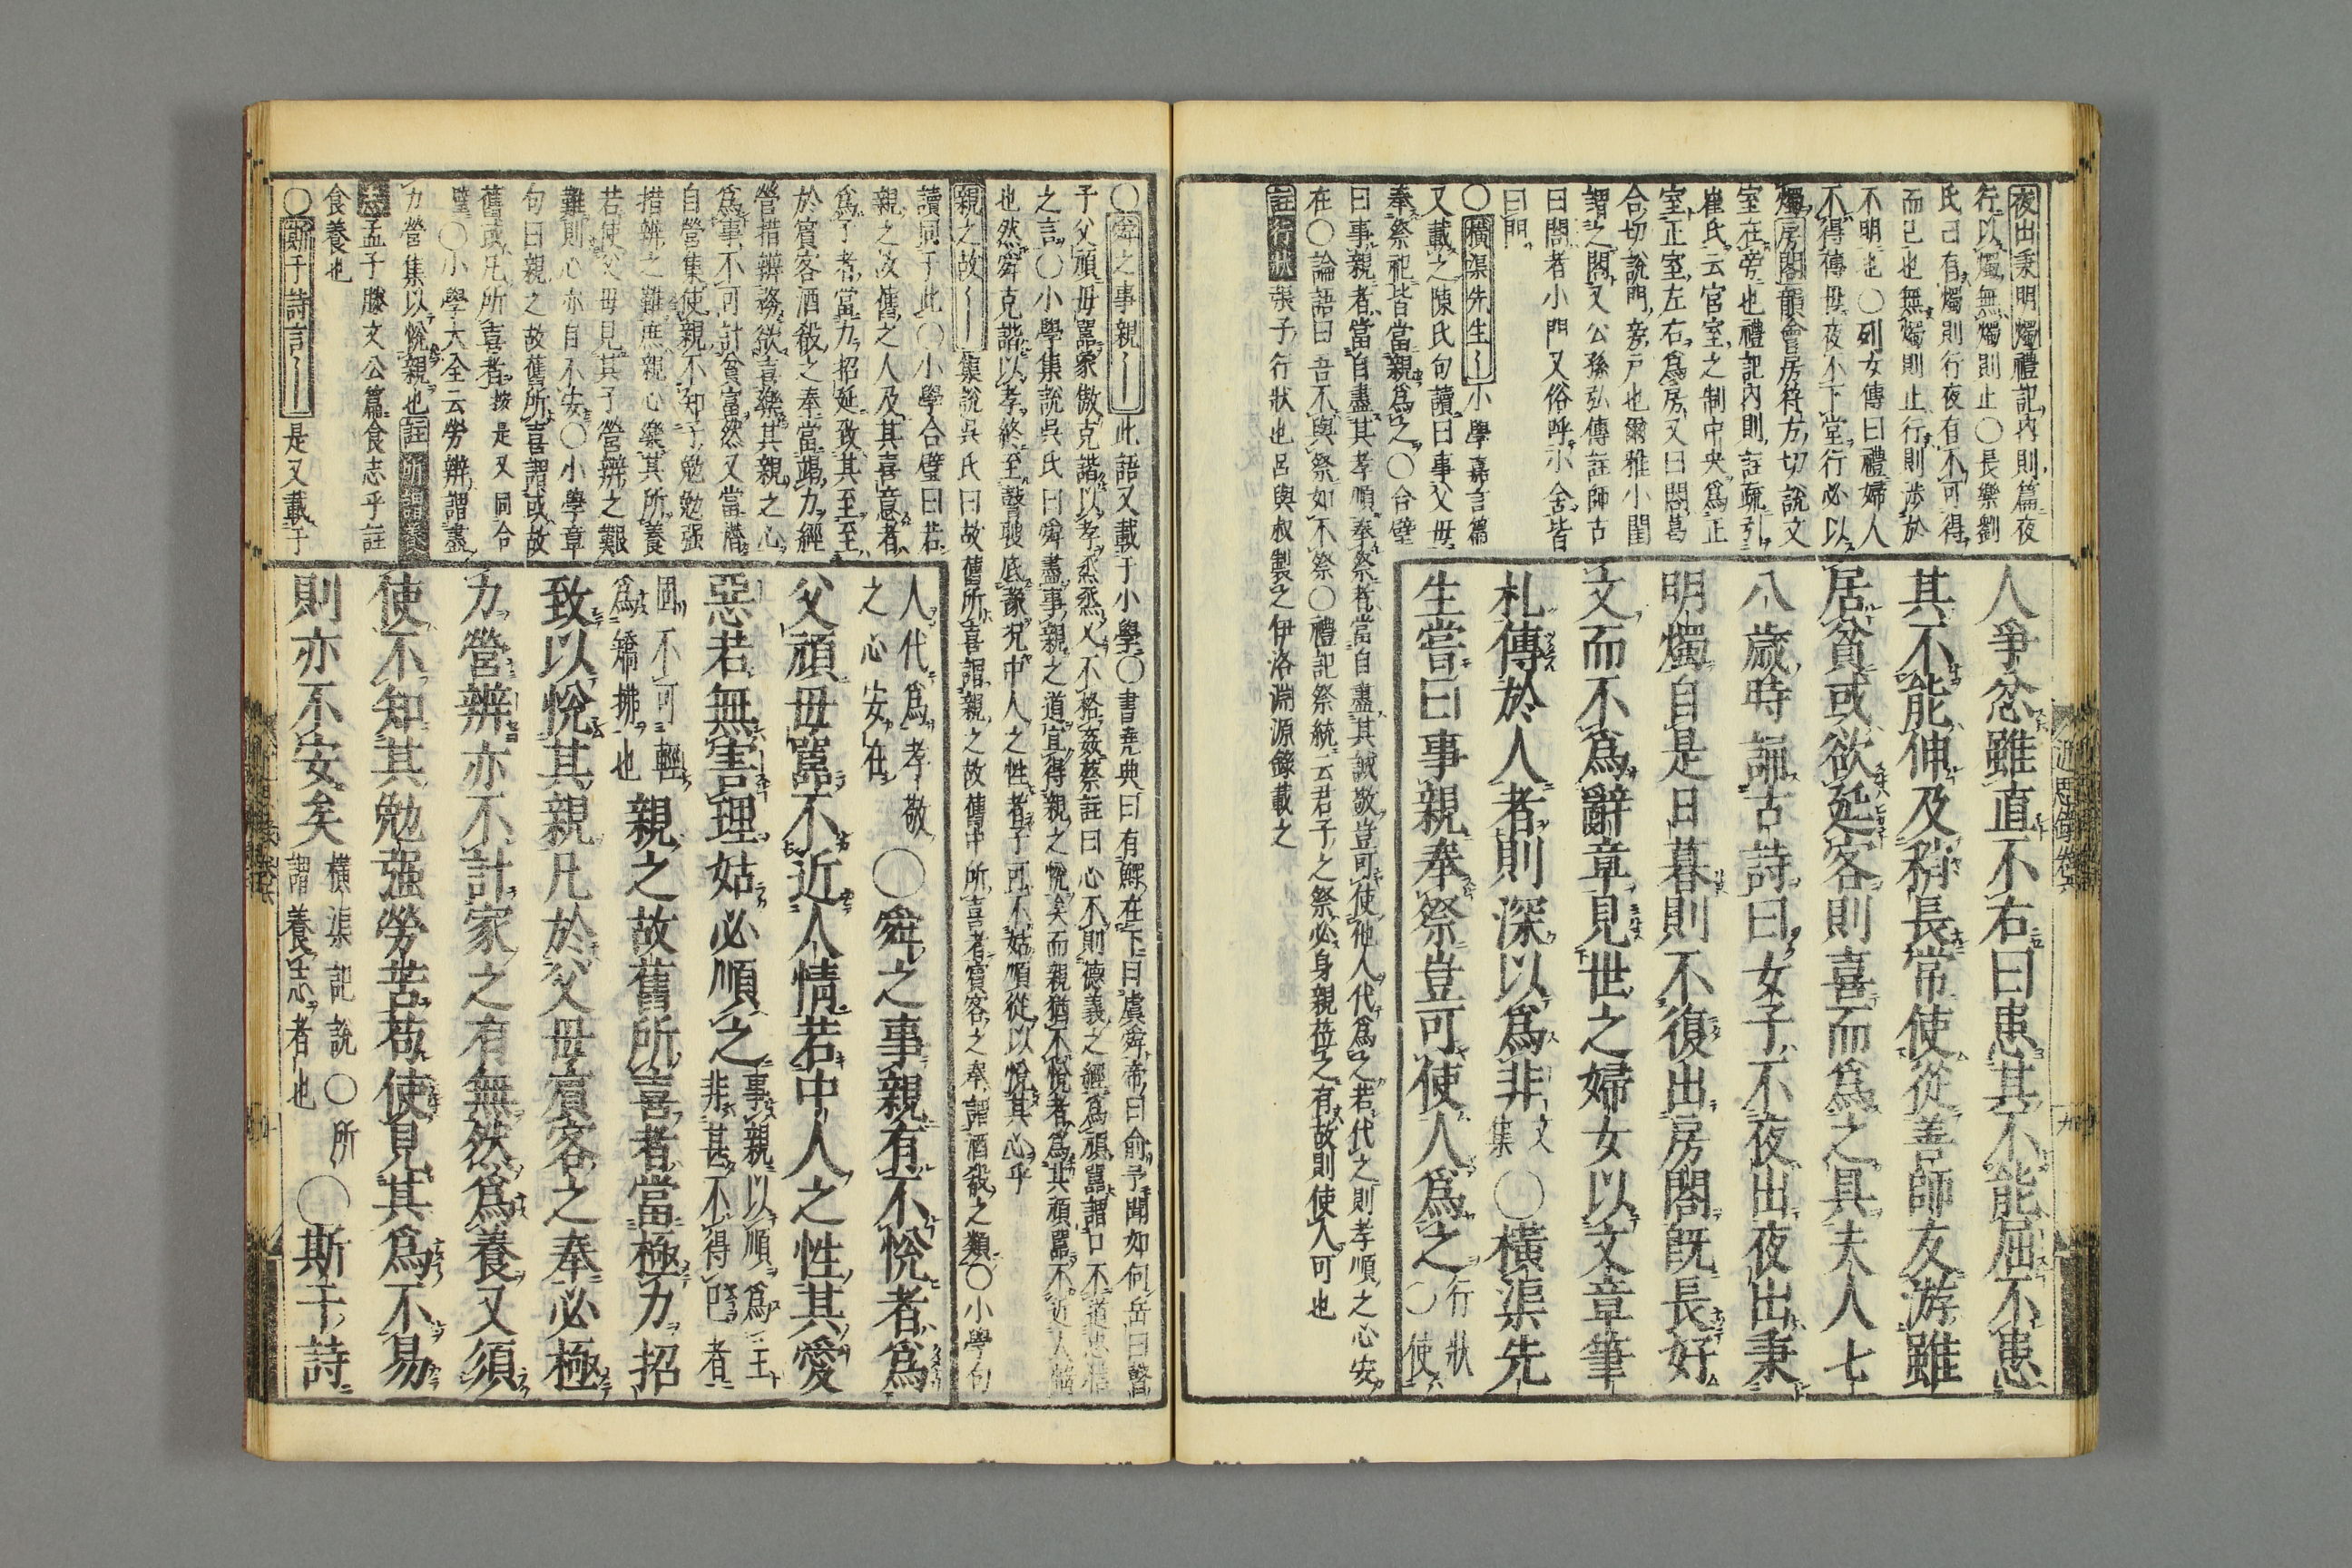 夜出秉明燭禮記內則篇夜
行以燭無燭則止〇長樂劉
氏曰有燭則行夜有不可得
而已也無燭則止行則涉於
不明也〇列女傳曰禮婦人
不得傅母夜不下堂行必以
燭房閤韻會房符方切說文
室在旁也禮記內則註疏引
崔氏云官室之制中央爲正
室正室左右爲房又曰閤葛
合切說門旁戶也爾雅小閨
謂之閤又公孫弘傳註師古
曰閤者小門又俗呼小舍皆
曰門
〇橫渠先生小學嘉言篇
又載之陳氏句讀曰事父母
奉祭祀皆當親爲之〇合璧
曰事親者當自盡其孝順奉祭者當自盡其誠敬豈可使他人代爲之若代之則孝順之心安
在〇論語曰吾不與祭如不祭〇禮記祭統云君子之祭必身親莅之有故則使人可也
註行狀張子行狀也呂與叔製之伊洛淵源錄載之
人爭忿雖直不右曰患其不能屈不患
其不能伸及稍長常使從善師友游雖
居貧或欲延客則喜而爲之具夫人七
八歲時誦古詩曰女子不夜出夜出秉
明燭自是日暮則不復出房閤旣長好
文而不爲辭章見世之婦女以文章筆
札傳於人者則深以爲非文集〇橫渠先
生嘗曰事親奉祭豈可使人爲之行狀〇使
〇舜之事親此語又載于小學〇書堯典曰有鰥在下曰虞舜帝曰俞予聞如何岳曰瞽
子父頑母嚚象傲克諧以孝烝烝乂不格姦蔡註曰心不則德義之經爲頑嚚謂口不道忠信
之言〇小學集說吳氏曰舜盡事親之道宜得親之悅矣而親猶不悅者爲其頑嚚不近人情
也然舜克諧以孝終至瞽瞍底豫況中人之性者子可不姑順從以悅其心乎
親之故集說吳氏曰故舊所喜謂親之故舊中所喜者賓客之奉謂酒殽之類〇小學句
讀同于此〇小學合璧曰若
親之故舊之人及其喜意者
爲子者當力招延致其至至
於賓客酒殽之奉當竭力經
營措辦務欲喜樂其親之心
爲事不可計貧富然又當潛
自營集使親不知子勉勉强
措辨之難庶親心樂其所養
若使父母見其子營辨之艱
難則心亦自不安〇小學章
句曰親之故舊所喜謂或故
舊或凡所喜者按是又同合
璧〇小學大全云勞辨謂盡
力營集以悅親也註所謂養
志孟子滕文公篇食志乎註
食養也
〇斯干詩言是又載于
人代爲孝敬
之心安在〇舜之事親有不悅者爲
父頑母嚚不近人情若中人之性其愛
惡若無害理姑必順之事親以順爲主
非甚不得已者
固不可輕
爲矯拂也親之故舊所喜者當極力招
致以悅其親凡於父母賓客之奉必極
力營辨亦不計家之有無然爲養又須
使不知其勉强勞苦苟使見其爲不易
則亦不安矣橫渠記說〇所
謂養志者也〇斯干詩